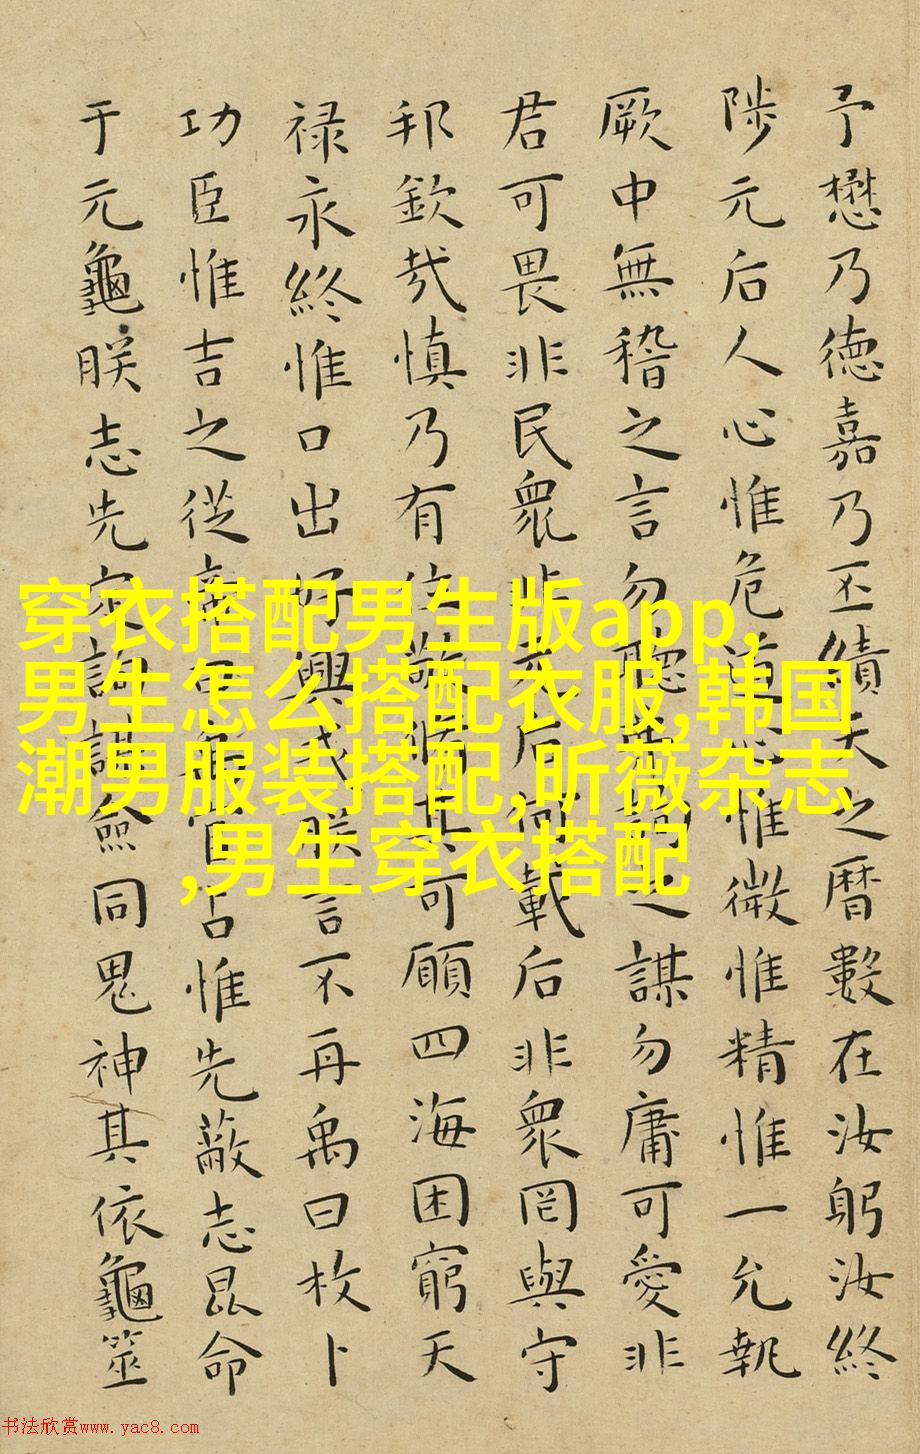 予懋乃德嘉乃丕績天之曆數在汝躬汝終
陟元后人心惟危道心惟微惟精惟一允執
厥中無稽之言勿聽弗詢之謀勿庸可愛非
君可畏非民衆非元后何載后非衆罔與守
邦欽哉慎乃有位敬脩其可願四海困窮天
禄永終惟口出好興戎朕言不再禹曰枚卜
功臣惟吉之從帝曰禹官占惟先蔽志昆命
于元龜朕志先定詢謀僉同鬼神其依龜筮
穿衣搭配男生版app,
男生怎么搭配衣服,韩国
潮男服装搭配,昕薇杂志
,男生穿衣搭配
书法欣赏www.yac8.com